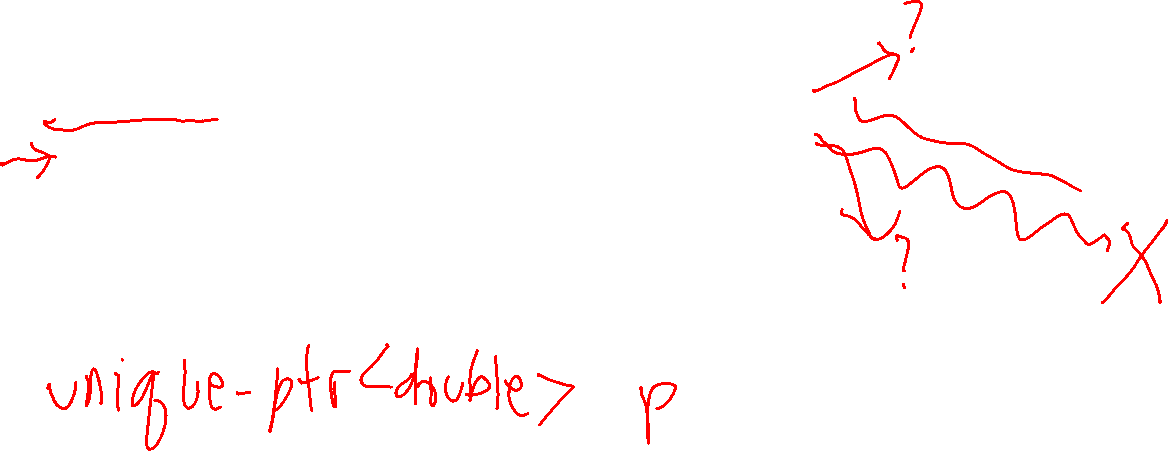 ?
X
?
unique_ptr<double> p